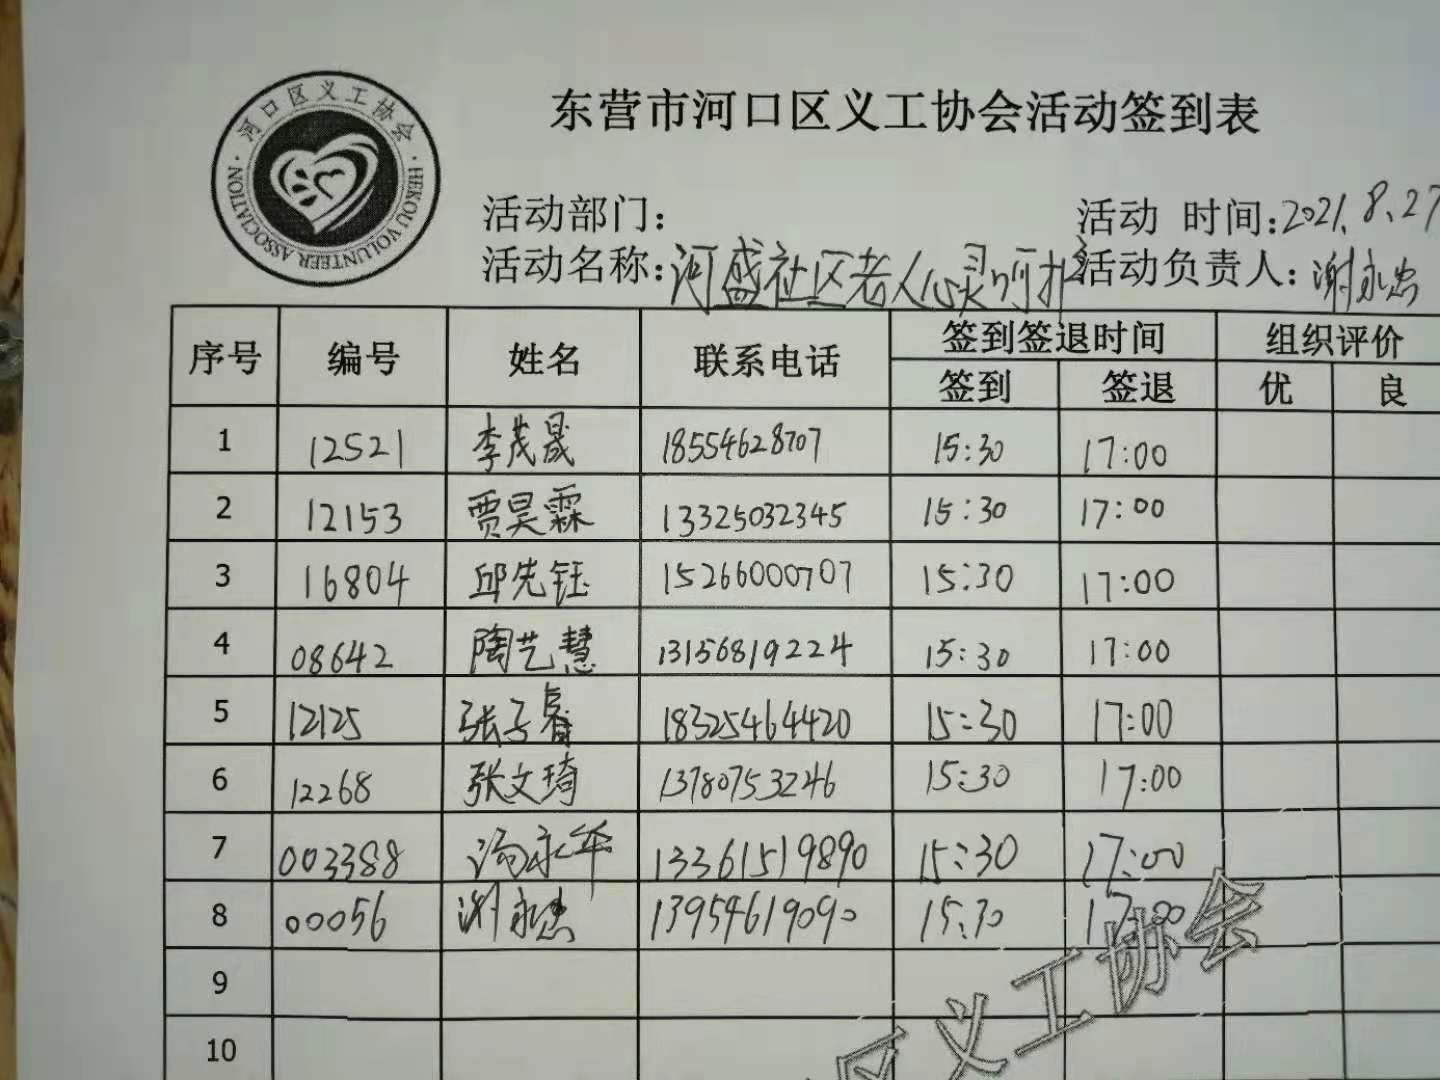 河口区义工协会
HEKOU VOLUNTEER ASSOCIATION
东营市河口区义工协会活动签到表
活动部门：
活动 时间:2021.8.27
活动名称:河盛社区老人心灵呵护
活动负责人:谢永忠
序号 编号 姓名 联系电话 签到签退时间 组织评价
签到 签退 优 良
1 12521 李茂晟 18554628707 15:30 17:00
2 12153 贾昊霖 13325032345 15:30 17:00
3 16804 邱先钰 15266000707 15:30 17:00
4 08642 陶艺慧 13156819224 15:30 17:00
5 12125 张子睿 18325464420 15:30 17:00
6 12268 张文琦 13780753246 15:30 17:00
7 003388 汤永华 13361519890 15:30 17:00
8 00056 谢永忠 13954619090 15:30 17:00
9
10
区义工协会